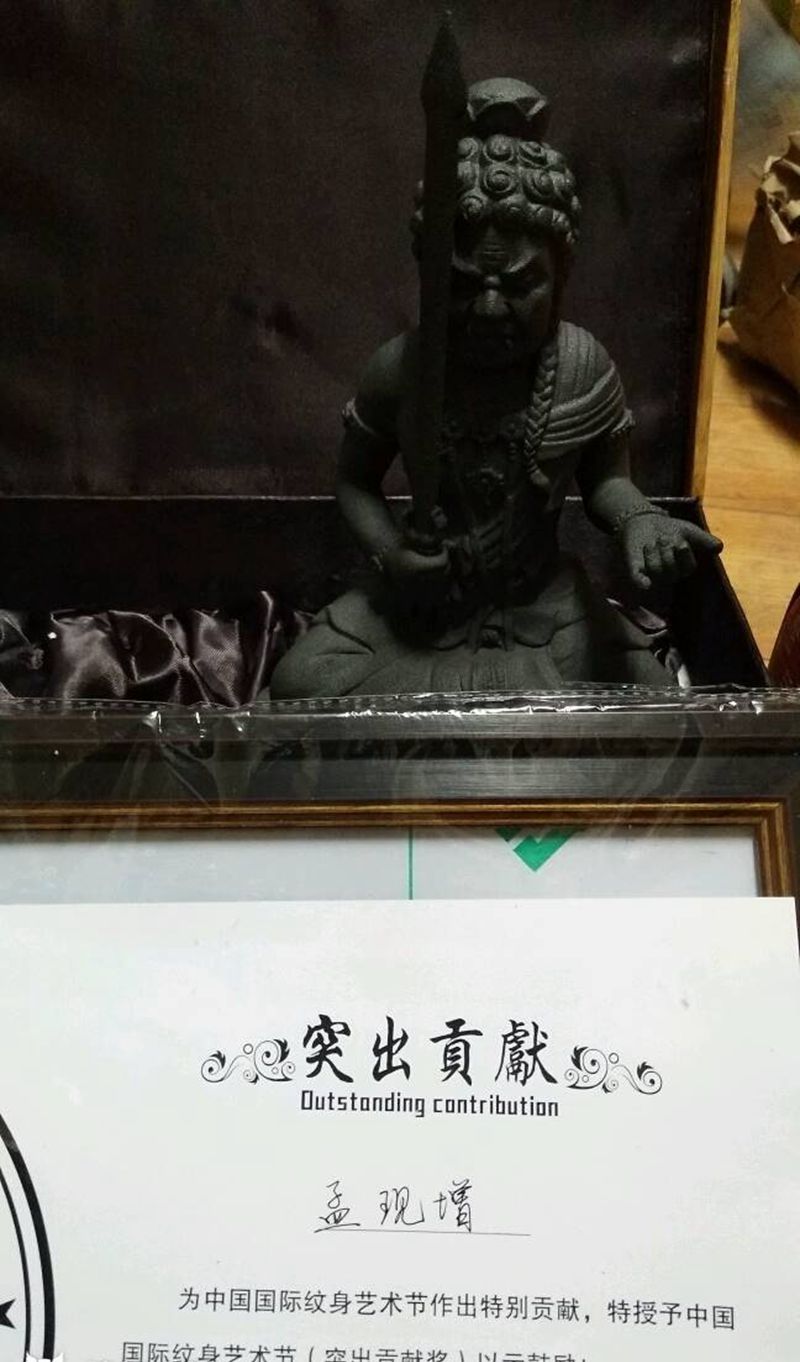 突出貢獻
Outstanding contribution
孟现增
为中国国际纹身艺术节作出特别贡献，特授予中国
国际纹身艺术节（突出贡献奖）以示鼓励！